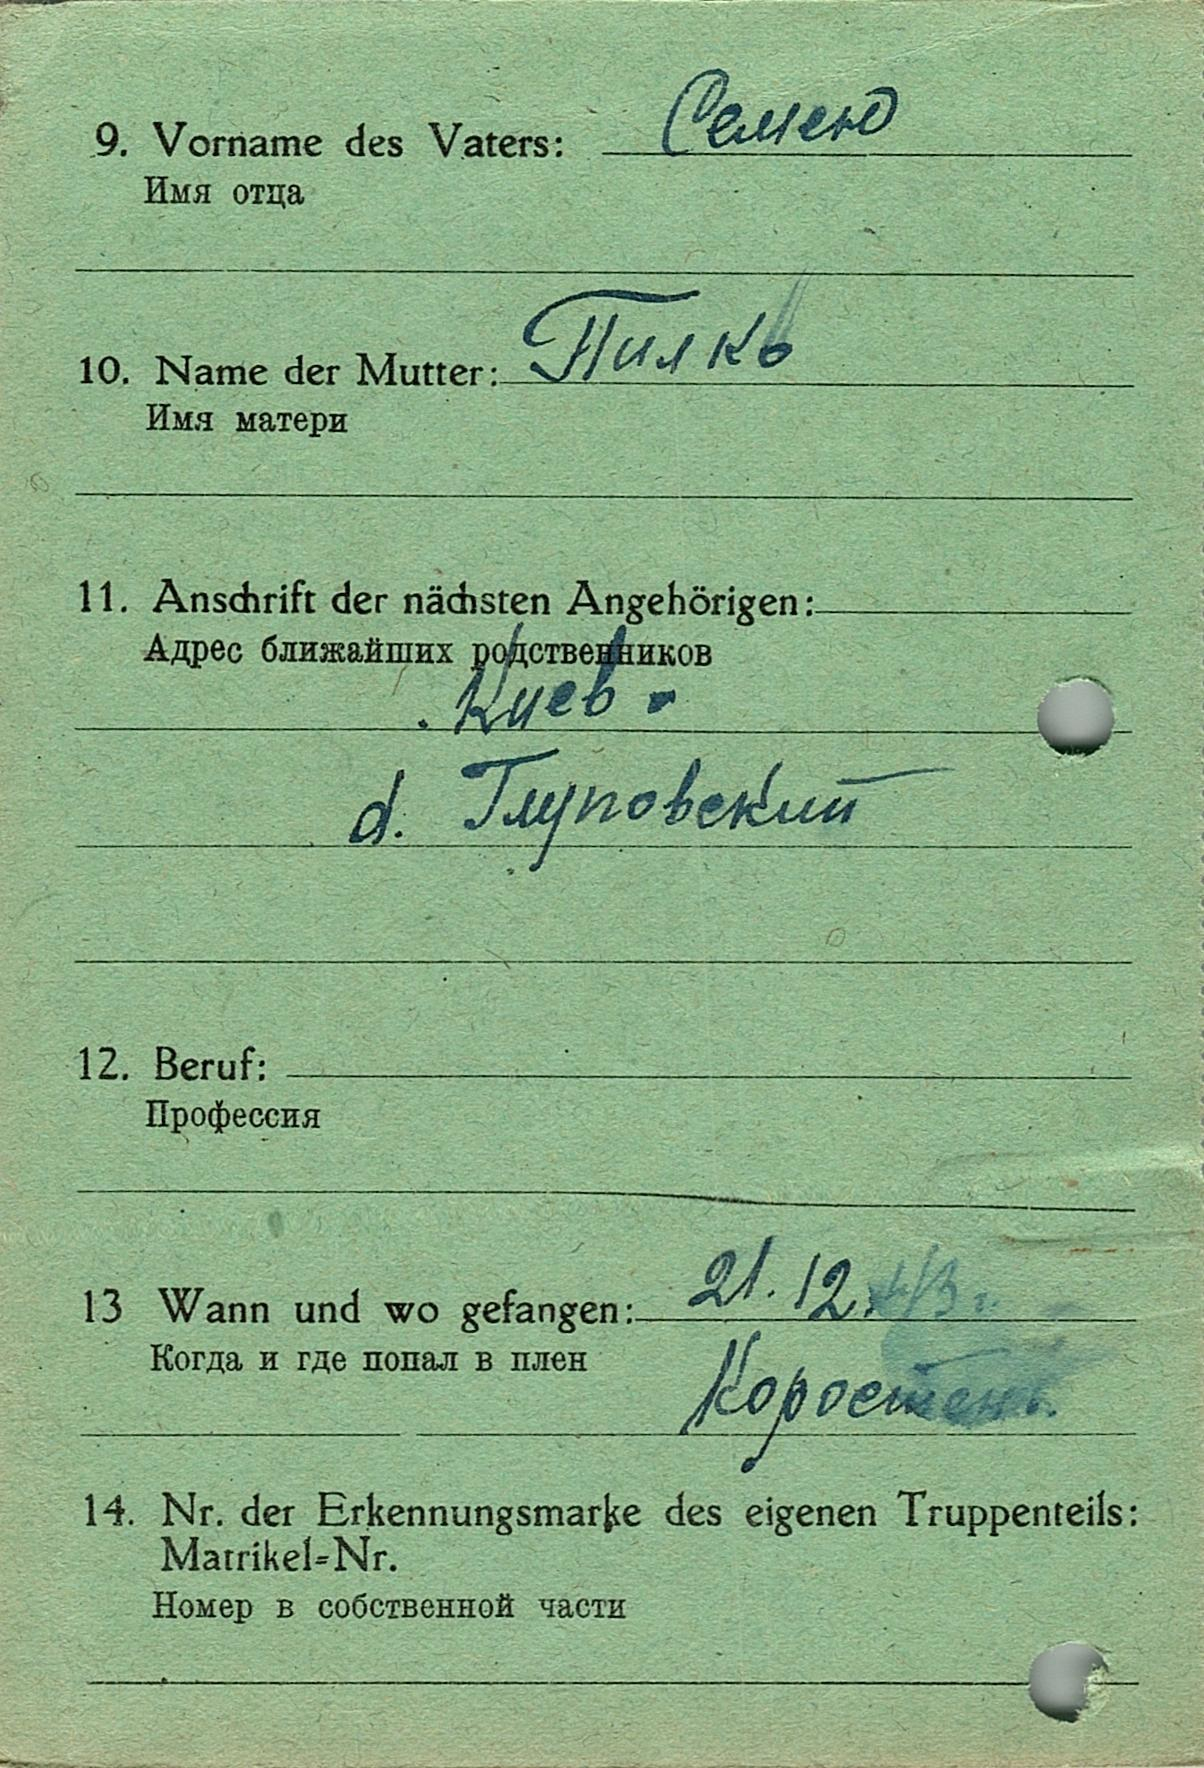 9. Vorname des Vaters: Семено
Имя отца
10. Name der Mutter: Пилкь
Имя матери
11. Anschrift der nächsten Angehörigen:
Адрес ближайших родственников
Киев -
d. Глуповский
12. Beruf:
Профессия
13 Wann und wo gefangen: 21.12.43г.
Когда и где попал в плен
Коростень.
14. Nr. der Erkennungsmarke des eigenen Truppenteils:
Matrikel=Nr.
Номер в собственной части